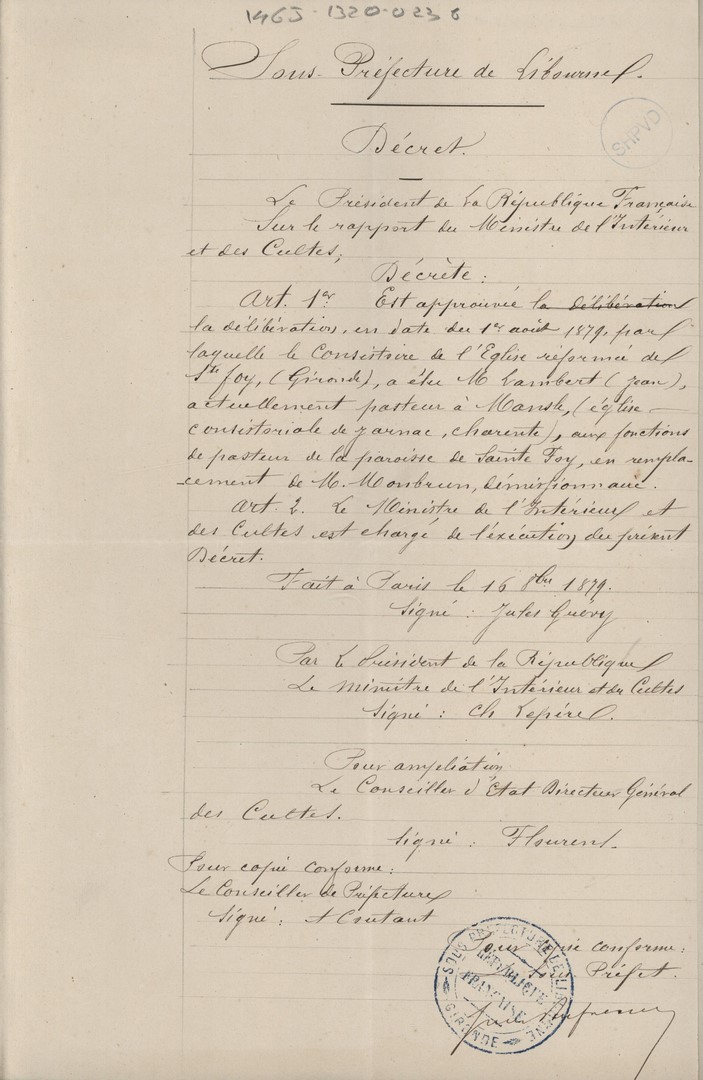 146J-1320-023 6
Sous-Préfecture de Libourne.
SHPVD
Décret.
Le Président de la République Française
Sur le rapport du Ministre de l'Intérieur
et des Cultes;
Décrète:
Art. 1er Est approuvée la délibération
la délibération, en date du 1er août 1879, par
laquelle le Consistoire de l'Eglise réformée de
Ste foy, (Gironde), a élu M Lambert (Jean),
actuellement pasteur à Mansle, (église
consistoriale de Jarnac, Charente), aux fonctions
de pasteur de la paroisse de Sainte Foy, en rempla-
cement de M. Monbrun, démissionnaire.
Art. 2. Le Ministre de l'Intérieur et
des Cultes est chargé de l'exécution du présent
Décret.
Fait à Paris le 16 8bre 1879.
Signé: Jules Grévy
Par le Président de la République
Le Ministre de l'Intérieur et des Cultes
Signé: Ch Lepère.
Pour ampliation
Le Conseiller d'État Directeur Général
des Cultes.
Signé: Flourens
Pour copie conforme:
Le Conseiller de Préfecture
Signé: A Coutant
Pour copie conforme:
Le Sous Préfet.
SOUS PREFECTURE DE LIBOURNE
REPUBLIQUE
FRANÇAISE
GIRONDE